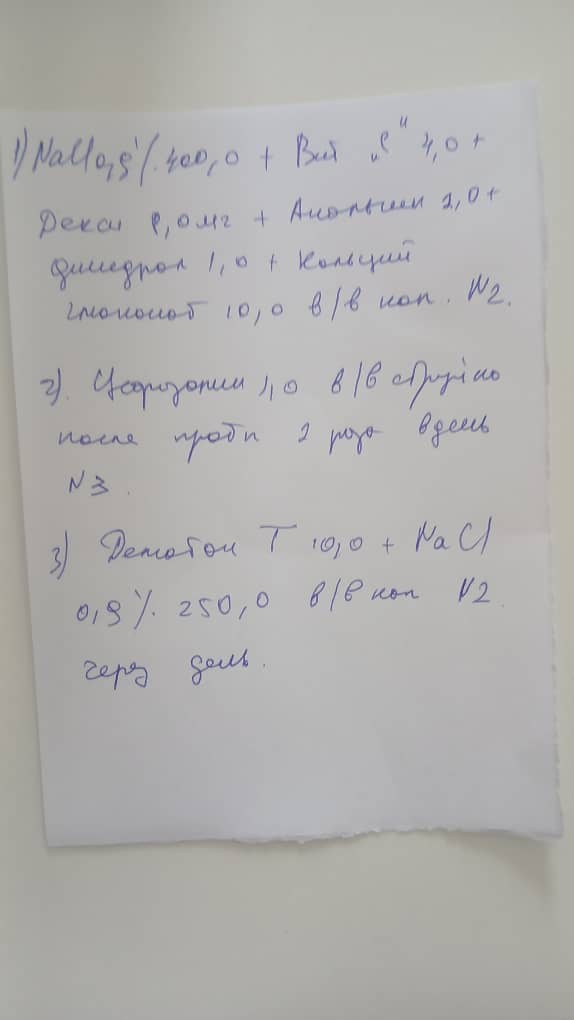 1) NaCl 0,9% 400,0 + Вит "С" 4,0 +
Декса 8,0 мг + Анальгин 2,0 +
димедрол 1,0 + Кальций
глюконат 10,0 в/в кап. N2.
2). Цефазолин 1,0 в/в струйно
после пробы 2 раза в день
N3.
3) T 10,0 + NaCl
0,9% 250,0 в/в кап N2
через день.